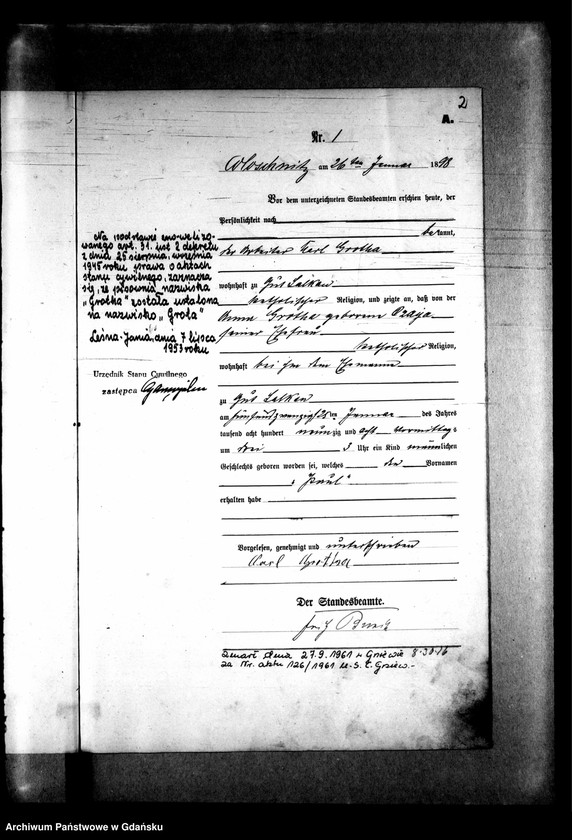 2
A.
Nr. 1
am 26ten Januar 1898
Vor dem unterzeichneten Standesbeamten erschien heute, der
Persönlichkeit nach
bekannt,
der Arbeiter Karl Grotha
wohnhaft zu Gut Lalkau
katholischer Religion, und zeigte an, daß von der
Anna Grotha geborenen
seiner Ehefrau
katholischer Religion,
wohnhaft bei ihm dem Ehemanne
zu Gut Lalkau
am fünfundzwanzigsten Januar des Jahres
tausend acht hundert neunzig und acht Vormittags
um drei Uhr ein Kind männlichen
Geschlechts geboren worden sei, welches den Vornamen
"Paul"
erhalten habe
Vorgelesen, genehmigt und unterschrieben
Carl Grotha
Der Standesbeamte.
Na podstawie znoweli zo-
wanego art. 31. ust 2 dekretu
z dnia 25 sierpnia, września
1945 roku prawa o aktach
stanu cywilnego, zaznacza
się, że pisownia nazwiska
"Grotha" została ustalona
na nazwisko "Grota"
Leśna-Jania, dnia 7 lipca
1953 roku
Urzędnik Stanu Cywilnego
zastępca
Zmarł dnia 27.9.1961 w Gniewie
za Nr. aktu 126/1961 U.S.C. Gniew.-
Archiwum Państwowe w Gdańsku